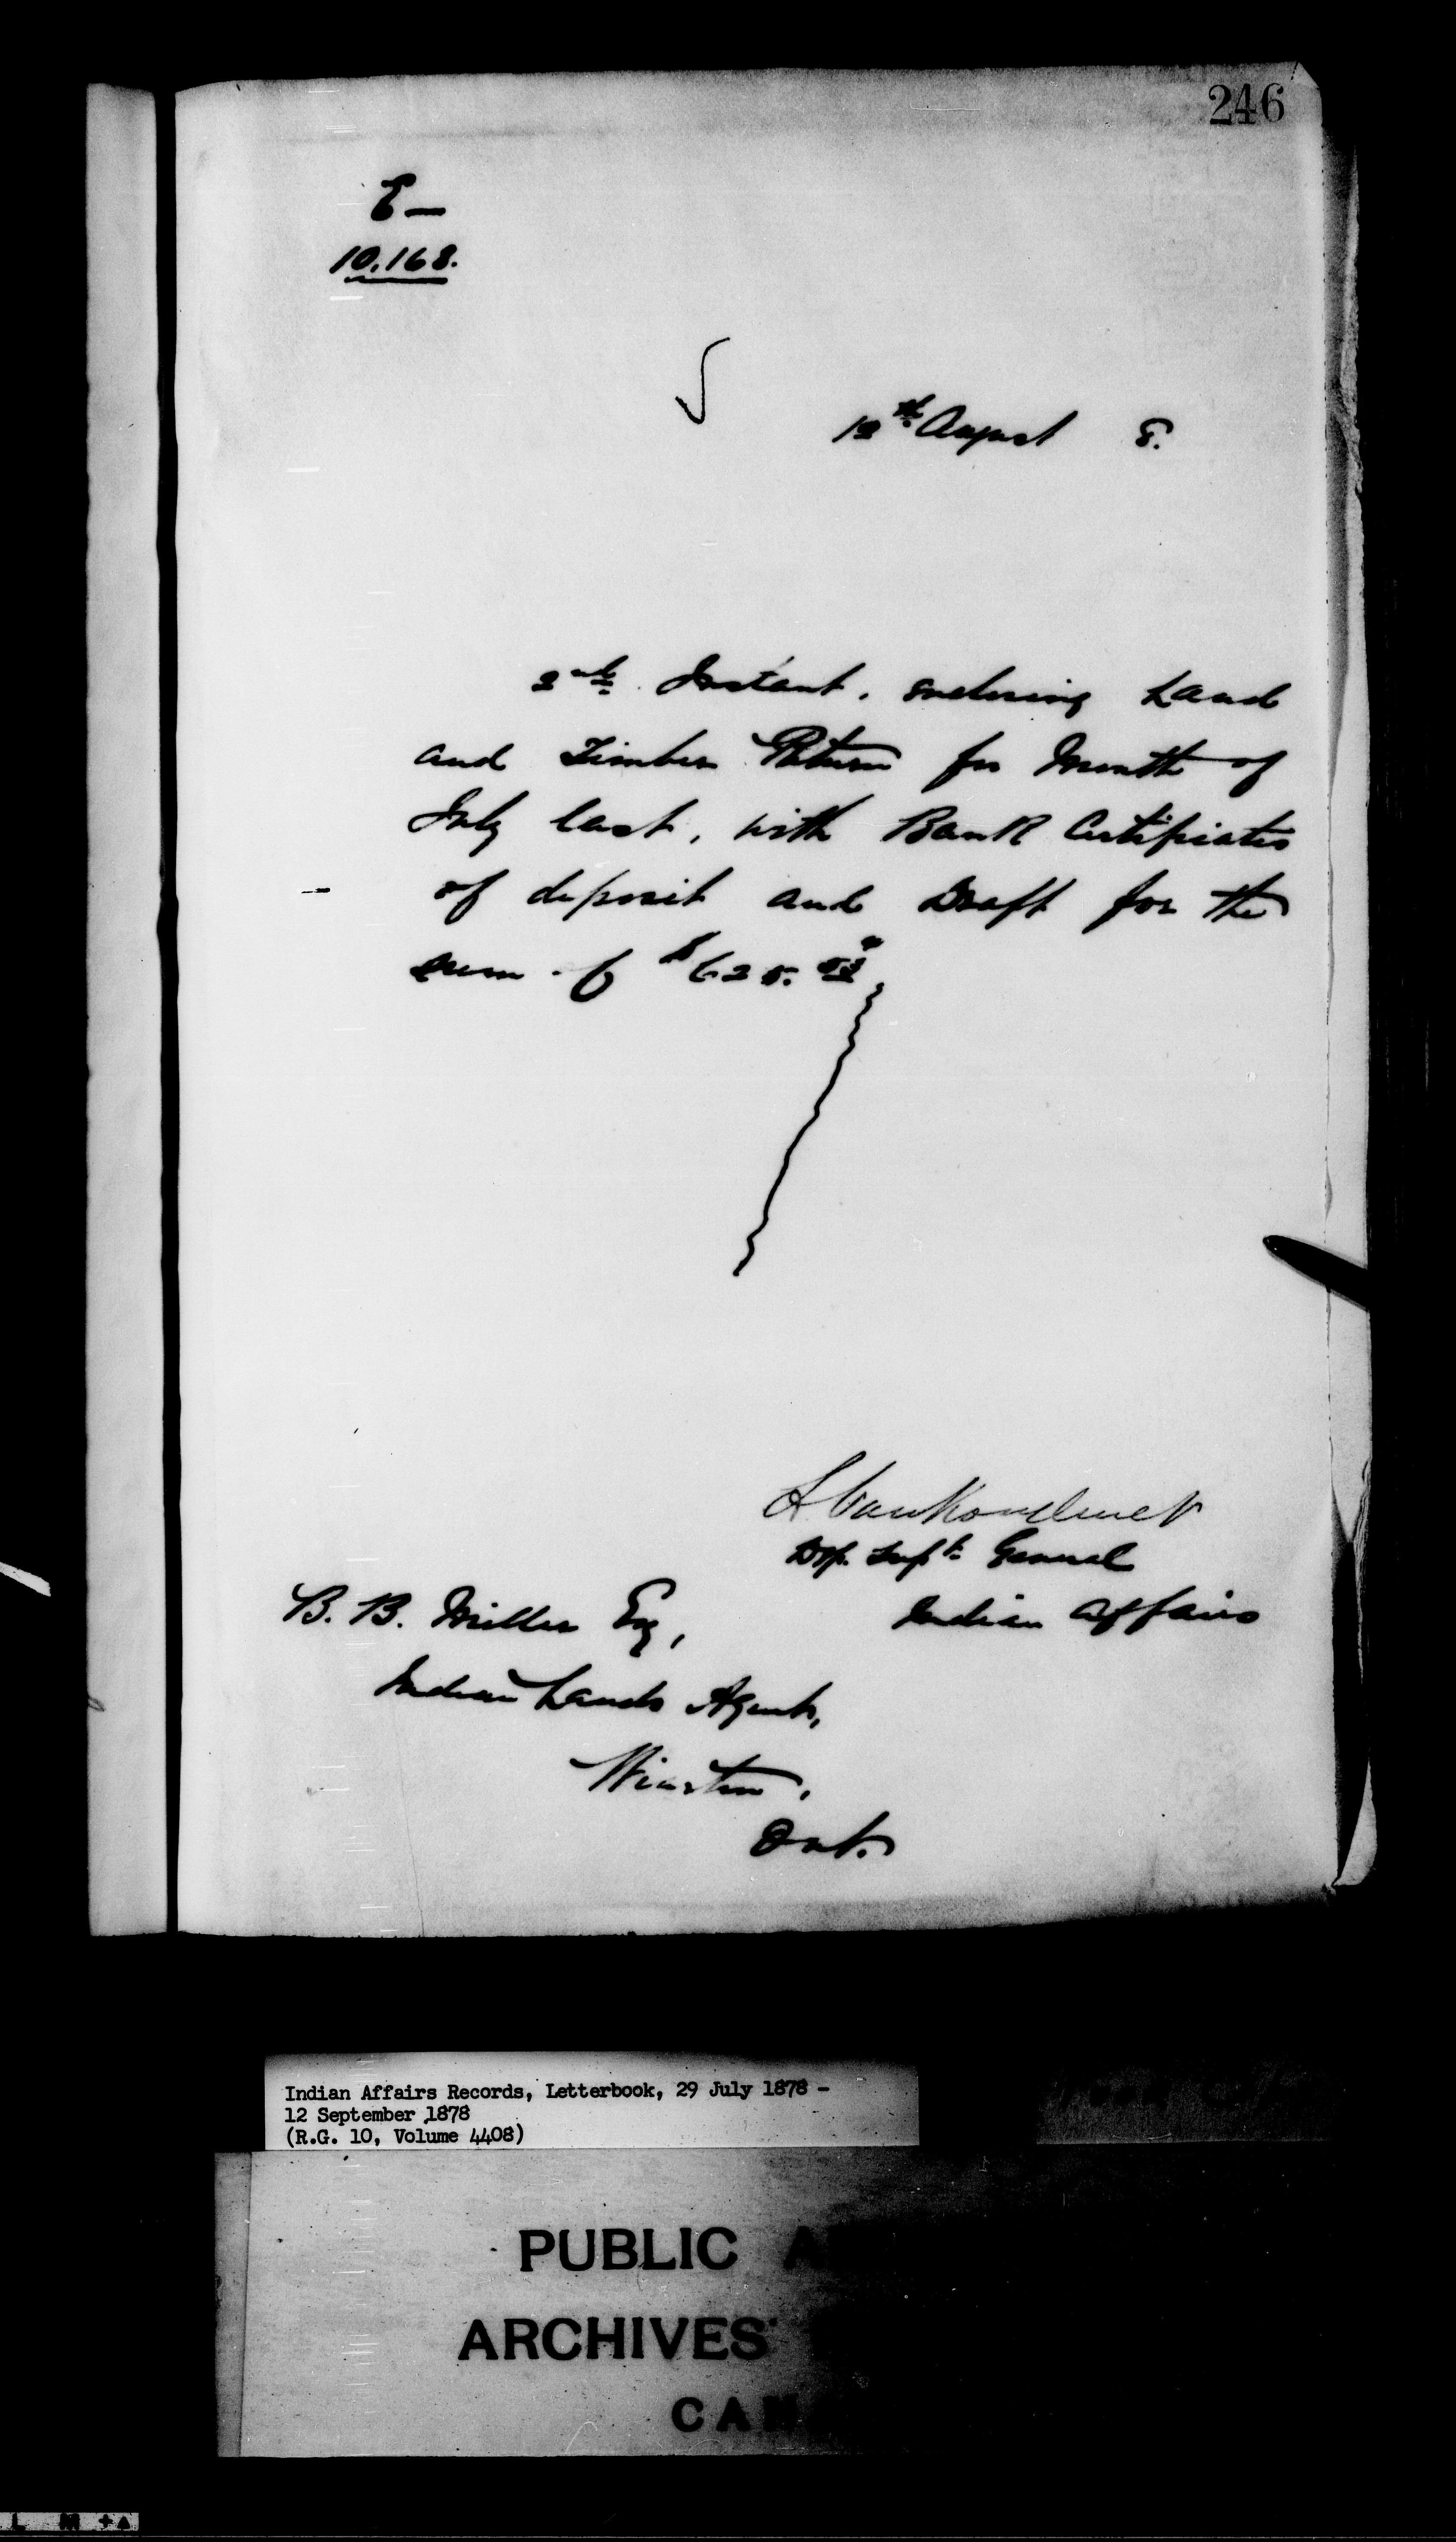 246
E—
10.168.
12th August 8.
2nd Instant, enclosing Land
and Timber Return for Month of
July last, with Bank Certificates
of deposit and Draft for the
sum of $625.
L VanKoughnet
Dep. Supt. General
Indian Affairs
B. B. Miller Esq,
Indian Lands Agent,
Wiarton,
Ont.
Indian Affairs Records, Letterbook, 29 July 1878 -
12 September 1878
(R.G. 10, Volume 4408)
PUBLIC A
ARCHIVES
CAN